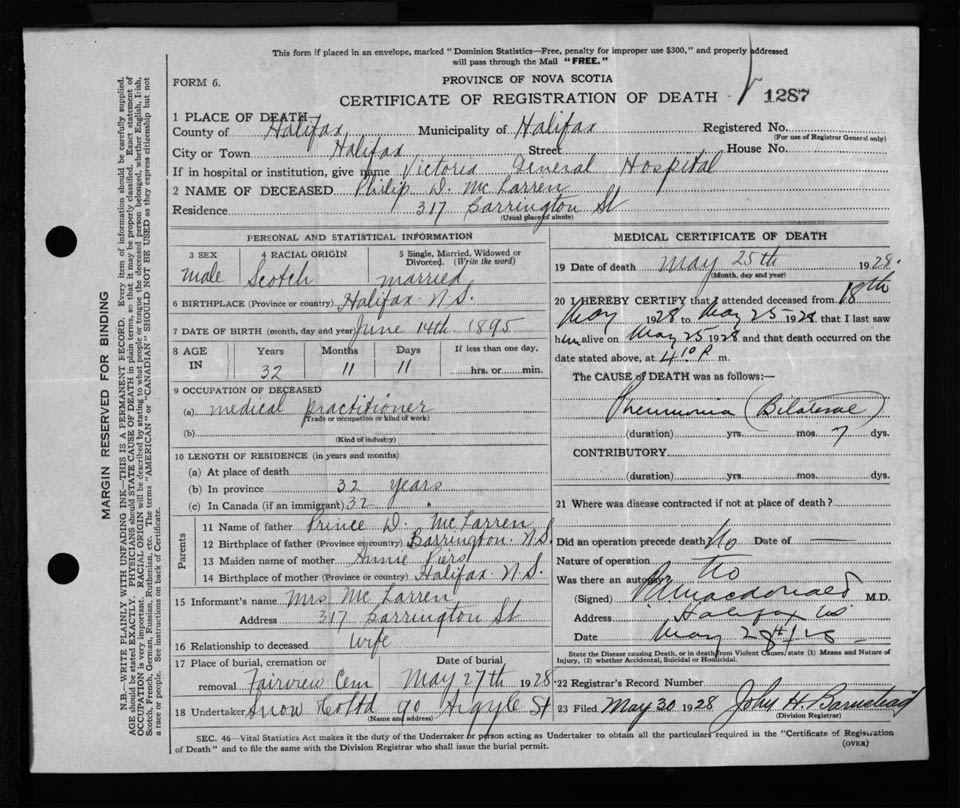 This form if placed in an envelope, marked "Dominion Statistics—Free, penalty for improper use $300," and properly addressed
will pass through the Mail "FREE."
FORM 6.
PROVINCE OF NOVA SCOTIA
CERTIFICATE OF REGISTRATION OF DEATH
1287
1 PLACE OF DEATH
County of Halifax Municipality of Halifax Registered No.
(For use of Registrar General only)
City or Town Halifax Street House No.
If in hospital or institution, give name Victoria General Hospital
2 NAME OF DECEASED Philip D. McLarren
Residence 317 Barrington St
(Usual place of abode)
PERSONAL AND STATISTICAL INFORMATION
3 SEX male
4 RACIAL ORIGIN Scotch
5 Single, Married, Widowed or Divorced. (Write the word) married
6 BIRTHPLACE (Province or country) Halifax N.S.
7 DATE OF BIRTH (month, day and year) June 14th 1895
8 AGE IN Years 32 Months 11 Days 11 If less than one day, hrs. or min.
9 OCCUPATION OF DECEASED
(a) medical practitioner
(Trade or occupation or kind of work)
(b)
(Kind of industry)
10 LENGTH OF RESIDENCE (in years and months)
(a) At place of death
(b) In province 32 years
(c) In Canada (if an immigrant) 32 "
Parents
11 Name of father Prince D. McLarren
12 Birthplace of father (Province or country) Barrington N.S.
13 Maiden name of mother Annie Piers
14 Birthplace of mother (Province or country) Halifax N.S.
15 Informant's name Mrs McLarren
Address 317 Barrington St
16 Relationship to deceased wife
17 Place of burial, cremation or removal Fairview Cem
Date of burial May 27th 1928
18 Undertaker Snow Co Ltd 90 Argyle St
(Name and address)
MEDICAL CERTIFICATE OF DEATH
19 Date of death May 25th 1928.
(Month, day and year)
20 I HEREBY CERTIFY that I attended deceased from 18th
May 1928 to May 25 1928 that I last saw
him alive on May 25 1928 and that death occurred on the
date stated above, at 4.10 P. m.
The CAUSE of DEATH was as follows:—
Pneumonia (Bilateral)
(duration) yrs. mos. 7 dys.
CONTRIBUTORY
(duration) yrs. mos. dys.
21 Where was disease contracted if not at place of death?
Did an operation precede death No Date of —
Nature of operation
Was there an autopsy? No
(Signed) Macdonald M.D.
Address Halifax NS
Date May 28th/28
State the Disease causing Death, or in death from Violent Causes, state (1) Means and Nature of
Injury, (2) whether Accidental, Suicidal or Homicidal.
22 Registrar's Record Number
23 Filed May 30 1928 John H. Barnstead
(Division Registrar)
SEC. 46—Vital Statistics Act makes it the duty of the Undertaker or person acting as Undertaker to obtain all the particulars required in the "Certificate of Registration
of Death" and to file the same with the Division Registrar who shall issue the burial permit.
(OVER)
MARGIN RESERVED FOR BINDING
N.B.—WRITE PLAINLY WITH UNFADING INK—THIS IS A PERMANENT RECORD. Every item of information should be carefully supplied.
AGE should be stated EXACTLY. PHYSICIANS should STATE CAUSE OF DEATH in plain terms, so that it may be properly classified. Exact statement of
OCCUPATION is very important. RACIAL ORIGIN will be described by stating to what people or tongue the deceased person belonged, whether English, Irish,
Scotch, French, German, Russian, Ruthenian, etc. The terms "AMERICAN" or "CANADIAN" SHOULD NOT BE USED as they express citizenship but not
a race or people. See instructions on back of Certificate.